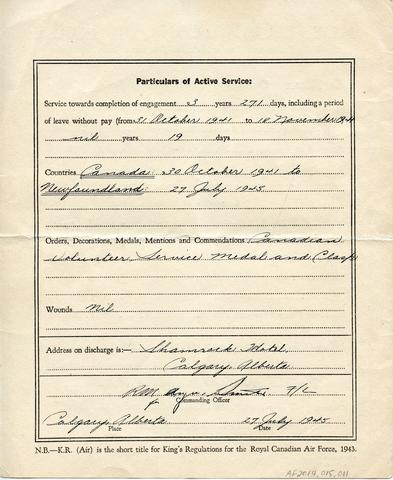 Particulars of Active Service:
Service towards completion of engagement 3 years 271 days, including a period
of leave without pay (from 31 October 1941 to 18 November 1941
nil years 19 days
Countries Canada: 30 October 1941 to
Newfoundland: 27 July 1945
Orders, Decorations, Medals, Mentions and Commendations Canadian
Volunteer Service Medal and Clasp
Wounds Nil
Address on discharge is:— Shamrock Hotel,
Calgary, Alberta
RM F/L
for Commanding Officer
Calgary, Alberta 27 July 1945
Place Date
N.B.—K.R. (Air) is the short title for King's Regulations for the Royal Canadian Air Force, 1943.
AF2019.015.011